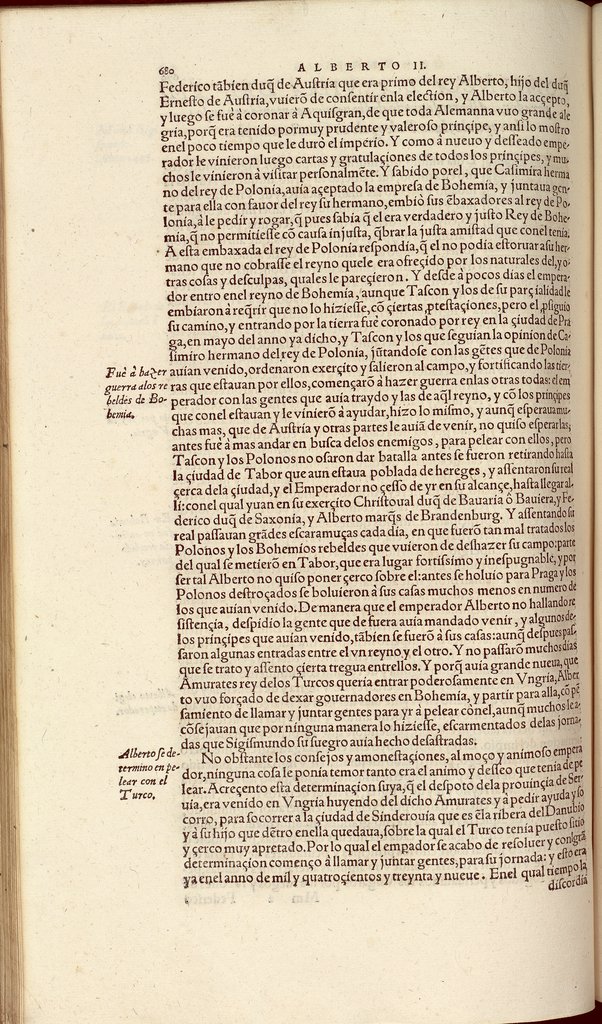 680
ALBERTO II.
Federico tãbien duq̃ de Auſtria que era primo del rey Alberto, hijo del duq̃
Erneſto de Auſtria, vuierõ de conſentir enla election, y Alberto la acçepto,
y luego ſe fuè à coronar à Aquiſgran, de que toda Alemanna vuo grande ale
gria, porq̃ era tenido pormuy prudente y valeroſo prinçipe, y anſi lo moſtro
enel poco tiempo que le durò el império. Y como à nueuo y deſſeado empe-
rador le vinieron luego cartas y gratulaçiones de todos los prinçipes, y mu-
chos le vinieron à viſitar perſonalmẽte. Y ſabido porel, que Caſimira herma
no del rey de Polonia, auia açeptado la empreſa de Bohemia, y juntaua gen-
te para ella con fauor del rey su hermano, embiò ſus ẽbaxadores al rey de Po-
lonia, à le pedir y rogar, q̃ pues ſabia q̃ el era verdadero y juſto Rey de Bohe-
mia, q̃ no permitieſſe cõ cauſa injuſta, q̃brar la juſta amiſtad que conel tenia.
A eſta embaxada el rey de Polonia reſpondia, q̃ el no podia eſtoruar aſu her-
mano que no cobraſſe el reyno quele era ofreçido por los naturales del, y o-
tras coſas y deſculpas, quales le pareçieron. Y deſde à pocos dias el empera-
dor entro enel reyno de Bohemia, aunque Taſcon y los de ſu parçialidad le
embiaron à req̃rir que no lo hizieſſe, cõ çiertas, ꝓteſtaçiones, pero el ꝓſiguio
ſu camino, y entrando por la tierra fuè coronado por rey en la çiudad de Pra
ga, en mayo del anno ya dicho, y Taſcon y los que ſeguian la opinion de Ca-
ſimiro hermano del rey de Polonia, jũtandoſe con las gẽtes que de Polonia
Fuè à hazer
guerra alos re
beldes de Bo-
hemia.
auian venido, ordenaron exerçito y ſalieron al campo, y fortificando las tier-
ras que eſtauan por ellos, començarõ à hazer guerra enlas otras todas: el em
perador con las gentes que auia traydo y las de aq̃l reyno, y cõ los prinçipes
que conel eſtauan y le vinierõ à ayudar, hizo lo miſmo, y aunq̃ eſperaua mu-
chas mas, que de Auſtria y otras partes le auiã de venir, no quiſo eſperarlas;
antes fuè à mas andar en buſca delos enemigos, para pelear con ellos, pero
Taſcon y los Polonos no oſaron dar batalla antes ſe fueron retirando haſta
la çiudad de Tabor que aun eſtaua poblada de hereges, y aſſentaron ſu real
çerca dela çiudad, y el Emperador no çeſſo de yr en ſu alcançe, haſta llegar al-
li: conel qual yuan en ſu exerçito Chriſtoual duq̃ de Bauaria ô Bauiera, y Fe-
derico duq̃ de Saxonia, y Alberto marq̃s de Brandenburg. Y aſſentando ſu
real paſſauan grãdes eſcaramuças cada dia, en que fuerõ tan mal tratados los
Polonos y los Bohemios rebeldes que vuieron de deshazer ſu campo: parte
del qual ſe metierõ en Tabor, que era lugar fortiſſimo y ineſpugnable, y por
ſer tal Alberto no quiſo poner çerco ſobre el: antes ſe boluio para Praga y los
Polonos deſtroçados ſe boluieron à ſus caſas muchos menos en numero de
los que auian venido. De manera que el emperador Alberto no hallando re
ſiſtençia, deſpidio la gente que de fuera auia mandado venir, y algunos de-
los prinçipes que auian venido, tãbien ſe fuerõ à ſus caſas: aunq̃ deſpues paſ-
ſaron algunas entradas entre el vn reyno y el otro. Y no paſſarõ muchos dias
que ſe trato y aſſento çierta tregua entrellos. Y porq̃ auia grande nueua, que
Amurates rey delos Turcos queria entrar poderoſamente en Vngria, Alber
to vuo forçado de dexar gouernadores en Bohemia, y partir para alla, cõ pẽ
ſamiento de llamar y juntar gentes para yr à pelear cõnel, aunq̃ muchos le a-
cõſejauan que por ninguna manera lo hizieſſe, eſcarmentados delas jorna-
das que Sigiſmundo ſu ſuegro auia hecho deſaſtradas.
Alberto ſe de-
termino en pe-
lear con el
Turco.
No obſtante los conſejos y amoneſtaçiones, al moço y animoſo empera
dor, ninguna coſa le ponia temor tanto era el animo y deſſeo que tenia de pe
lear. Acreçento eſta determinaçion ſuya, q̃ el deſpoto dela prouinçia de Ser-
uia, era venido en Vngria huyendo del dicho Amurates y à pedir ayuda y ſo
corro, para ſocorrer a la çiudad de Sinderouia que es ẽla ribera del Danubio
y à ſu hijo que dẽtro enella quedaua, ſobre la qual el Turco tenia pueſto ſitio
y çerco muy apretado. Por lo qual el empador ſe acabo de reſoluer y con
determinaçion començo à llamar y juntar gentes, para ſu jornada: y eſto era
ya enel anno de mil y quatroçientos y treynta y nueue. Enel qual tiempo la
diſcordia